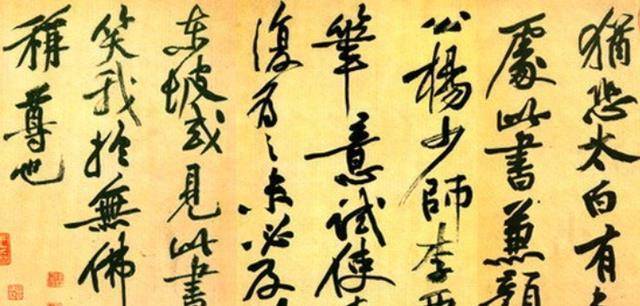 猶恐太白有
處此書兼顏
公楊少師李西
筆意試使
復為之未必及
東坡或見此書
笑我於無佛
稱尊也